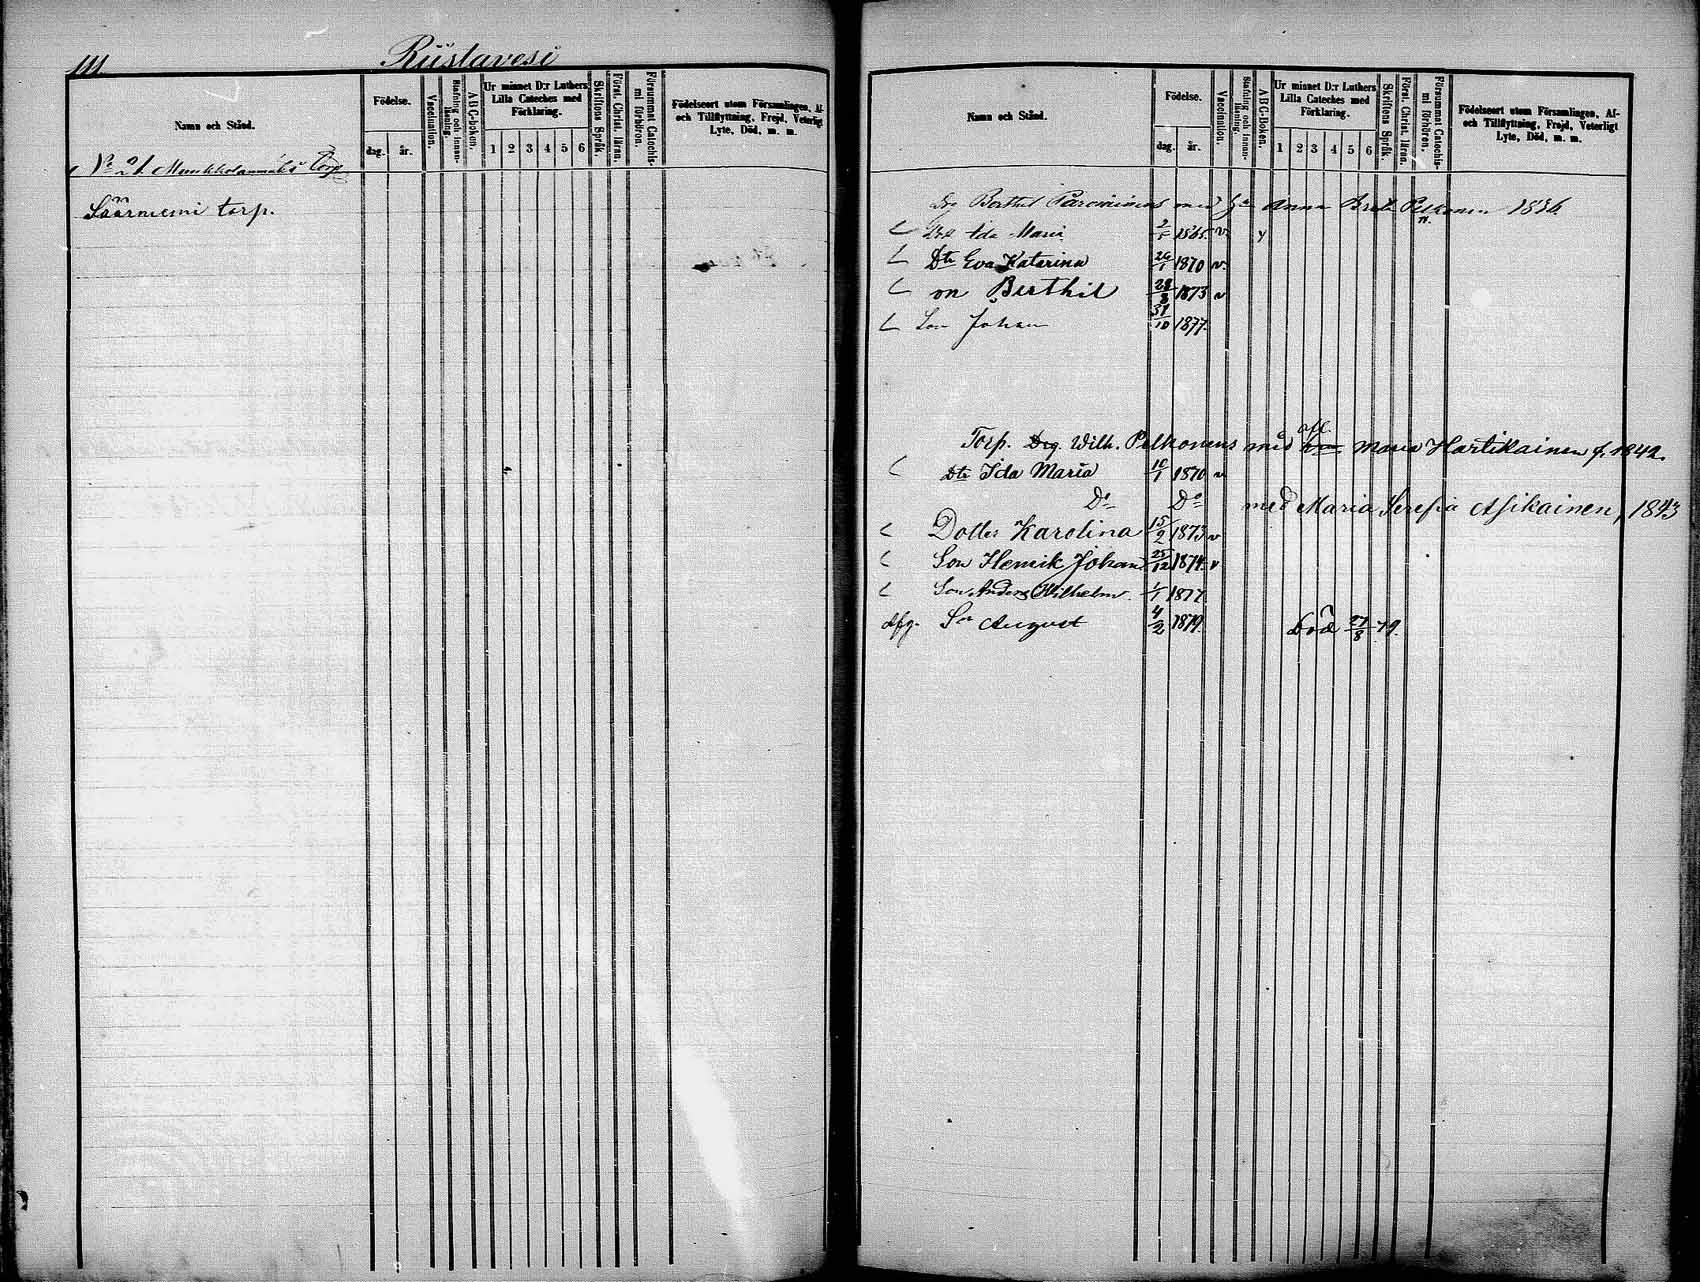 111.
Riistavesi
Namn och Stånd.
Födelse.
dag. år.
Vaccination.
Stafning och Innanläsning.
A B C-boken.
Ur minnet D:r Luthers Lilla Cateches med Förklaring.
1 2 3 4 5 6
Skriftens Språk.
Först. Christ. läran.
Försummat Catechismi förhören.
Födelseort utom Församlingen, Af- och Tillflyttning, Frejd, Veterligt Lyte, Död, m. m.
No 21. Torp
Saarniemi torp.
Namn och Stånd.
Födelse.
dag. år.
Vaccination.
Stafning och Innanläsning.
A B C-Boken.
Ur minnet D:r Luthers Lilla Cateches med Förklaring.
1 2 3 4 5 6
Skriftens Språk.
Först. Christ. läran.
Försummat Catechismi förhören.
Födelseort utom Församlingen, Af- och Tillflyttning, Frejd, Veterligt Lyte, Död, m. m.
Drg Berthil Parvinines med Hu Anna Brita Pelkonen 1836.
Ida Maria 1865 v
Dtr Eva Katarina 26/1 1870 v.
on Berthil 28/8 1873 v
Son Johan 31/10 1877.
Torp. Drg. Wilh. Pelkonens med afl. Maria Hartikainen f. 1842.
Dtr Ida Maria 10/1 1870 v
Do Do med Maria Serefia Asikainen, 1843
Dotter Karolina 15/2 1873 v
Son Henrik Johan 25/12 1874 v
Son Anders Wilhelm 1/1 1877
afg. Son August 4/2 1879. Död 27/8 79.